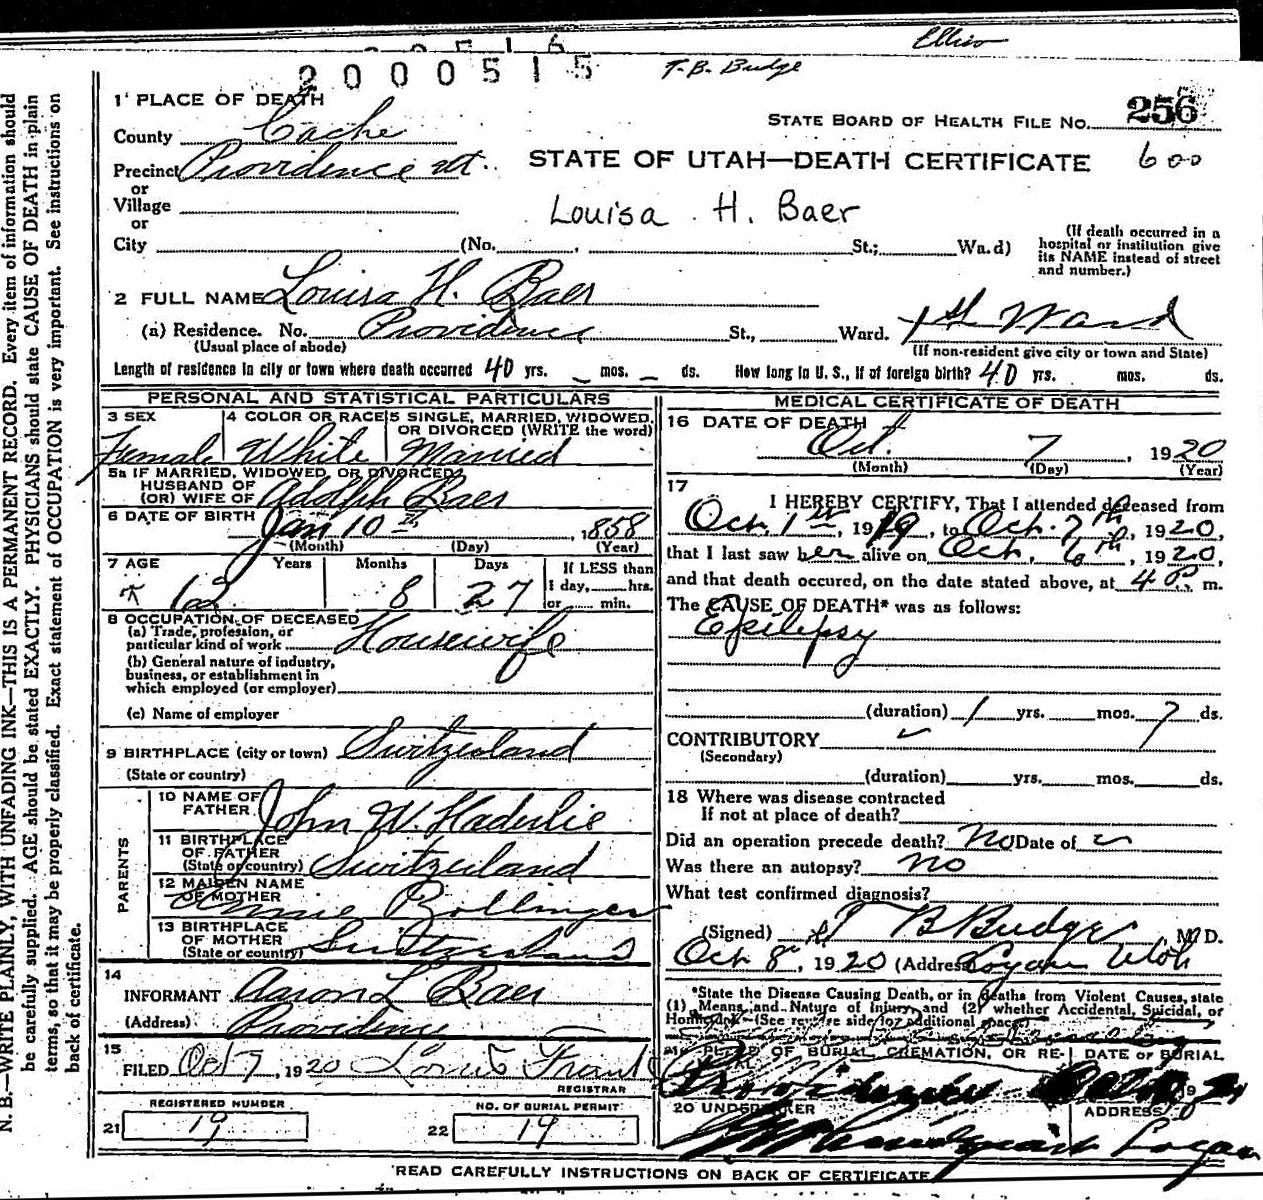 Ellis
2000515
T. B. Budge
1 PLACE OF DEATH
256
STATE BOARD OF HEALTH FILE No.
County Cache
600
STATE OF UTAH—DEATH CERTIFICATE
Precinct Providence Ut.
or
Village
Louisa H. Baer
or
City (No. , St.; Wa.d)
(If death occurred in a
hospital or institution give
its NAME instead of street
and number.)
2 FULL NAME Louisa H. Baer
(a) Residence. No. Providence St., Ward. 1st Ward
(Usual place of abode) (If non-resident give city or town and State)
Length of residence in city or town where death occurred 40 yrs. – mos. – ds. How long in U. S., if of foreign birth? 40 yrs. mos. ds.
PERSONAL AND STATISTICAL PARTICULARS
3 SEX 4 COLOR OR RACE 5 SINGLE, MARRIED, WIDOWED,
OR DIVORCED (WRITE the word)
Female White Married
5a IF MARRIED, WIDOWED, OR DIVORCED
HUSBAND OF
(OR) WIFE OF Adolph Baer
6 DATE OF BIRTH Jan 10th, 1858
(Month) (Day) (Year)
7 AGE Years Months Days If LESS than
1 day, hrs.
62 8 27 or min.
8 OCCUPATION OF DECEASED
(a) Trade, profession, or
particular kind of work Housewife
(b) General nature of industry,
business, or establishment in
which employed (or employer)
(c) Name of employer
9 BIRTHPLACE (city or town) Switzerland
(State or country)
PARENTS
10 NAME OF
FATHER John W. Haderlie
11 BIRTHPLACE
OF FATHER
(State or country) Switzerland
12 MAIDEN NAME
OF MOTHER Annie Bollinger
13 BIRTHPLACE
OF MOTHER
(State or country) Switzerland
14
INFORMANT Aaron L Baer
(Address) Providence
15
FILED Oct 7, 1920 Louis Frank
REGISTRAR
REGISTERED NUMBER NO. OF BURIAL PERMIT
21 19 22 19
MEDICAL CERTIFICATE OF DEATH
16 DATE OF DEATH
Oct. 7, 1920
(Month) (Day) (Year)
17
I HEREBY CERTIFY, That I attended deceased from
Oct. 1st, 1919, to Oct. 7th, 1920,
that I last saw her alive on Oct. 6th, 1920,
and that death occured, on the date stated above, at 4 P. m.
The CAUSE OF DEATH* was as follows:
Epilipsy
(duration) 1 yrs. mos. 7 ds.
CONTRIBUTORY
(Secondary)
(duration) yrs. mos. ds.
18 Where was disease contracted
If not at place of death?
Did an operation precede death? No Date of
Was there an autopsy? no
What test confirmed diagnosis?
(Signed) T B Budge, M D.
Oct 8, 1920 (Address Logan Utah
*State the Disease Causing Death, or in deaths from Violent Causes, state
(1) Means and Nature of Injury, and (2) whether Accidental, Suicidal, or
Homicidal. (See reverse side for additional space.)
PLACE OF BURIAL, CREMATION, OR RE- DATE OF BURIAL
Providence
20 UNDERTAKER ADDRESS
Logan
READ CAREFULLY INSTRUCTIONS ON BACK OF CERTIFICATE
N. B.—WRITE PLAINLY, WITH UNFADING INK—THIS IS A PERMANENT RECORD. Every item of information should
be carefully supplied. AGE should be stated EXACTLY. PHYSICIANS should state CAUSE OF DEATH in plain
terms, so that it may be properly classified. Exact statement of OCCUPATION is very important. See instructions on
back of certificate.